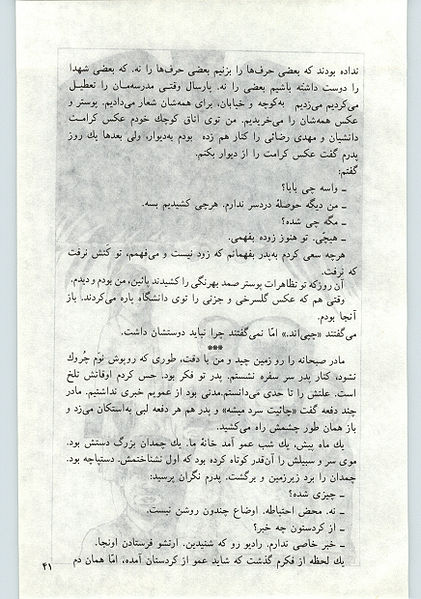 نداده بودند که بعضی حرف‌ها را بزنیم بعضی حرف‌ها را نه. که بعضی شهدا
را دوست داشته باشیم بعضی را نه. پارسال وقتی مدرسه‌مان را تعطیل
می‌کردیم می‌زدیم به‌کوچه و خیابان، برای همه‌شان شعار می‌دادیم. پوستر و
عکس همه‌شان را می‌خریدیم. من توی اتاق کوچک خودم عکس کرامت
دانشیان و مهدی رضائی را کنار هم زده بودم به‌دیوار، ولی بعدها یك روز
پدرم گفت عکس کرامت را از دیوار بکنم.
گفتم:
ـ واسه چی بابا؟
ـ من دیگه حوصلهٔ دردسر ندارم. هرچی کشیدیم بسه.
ـ مگه چی شده؟
ـ هیچّی. تو هنوز زوده بفهمی.
هرچه سعی کردم به‌پدر بفهمانم که زود نیست و می‌فهمم، تو کَتش نرفت
که نرفت.
آن روزکه تو تظاهرات پوستر صمد بهرنگی را کشیدند پائین، من بودم و دیدم.
وقتی هم که عکس گلسرخی و جزنی را توی دانشگاه پاره می‌کردند. باز
آنجا بودم.
می‌گفتند «چپی‌اند.» امّا نمی‌گفتند چرا نباید دوستشان داشت.
***
مادر صبحانه را رو زمین چید و من با دقت، طوری که روپوش نوَم چُروك
نشود، کنار پدر سر سفره نشستم. پدر تو فکر بود. حس کردم اوقاتش تلخ
است. علتش را تا حدی می‌دانستم.مدتی بود از عمویم خبری نداشتیم. مادر
چند دفعه گفت «چائیت سرد میشه» و پدر هم هر دفعه لبی به‌استکان می‌زد و
باز همان طور چشمش راه می‌کشید.
یك ماه پیش، یك شب عمو آمد خانهٔ ما. یك چمدان بزرگ دستش بود.
موی سر و سبیلش را آن‌قدر کوتاه کرده بود که اول نشناختمش. دستپاچه بود.
چمدان را برد زیرزمین و برگشت. پدرم نگران پرسید:
ـ چیزی شده؟
ـ نه. محض احتیاطه. اوضاع چندون روشن نیست.
ـ از کردستون چه خبر؟
ـ خبر خاصی ندارم. رادیو رو که شنیدین. ارتشو فرستادن اونجا.
یك لحظه از فکرم گذشت که شاید عمو از کردستان آمده، امّا همان دم
۴۱